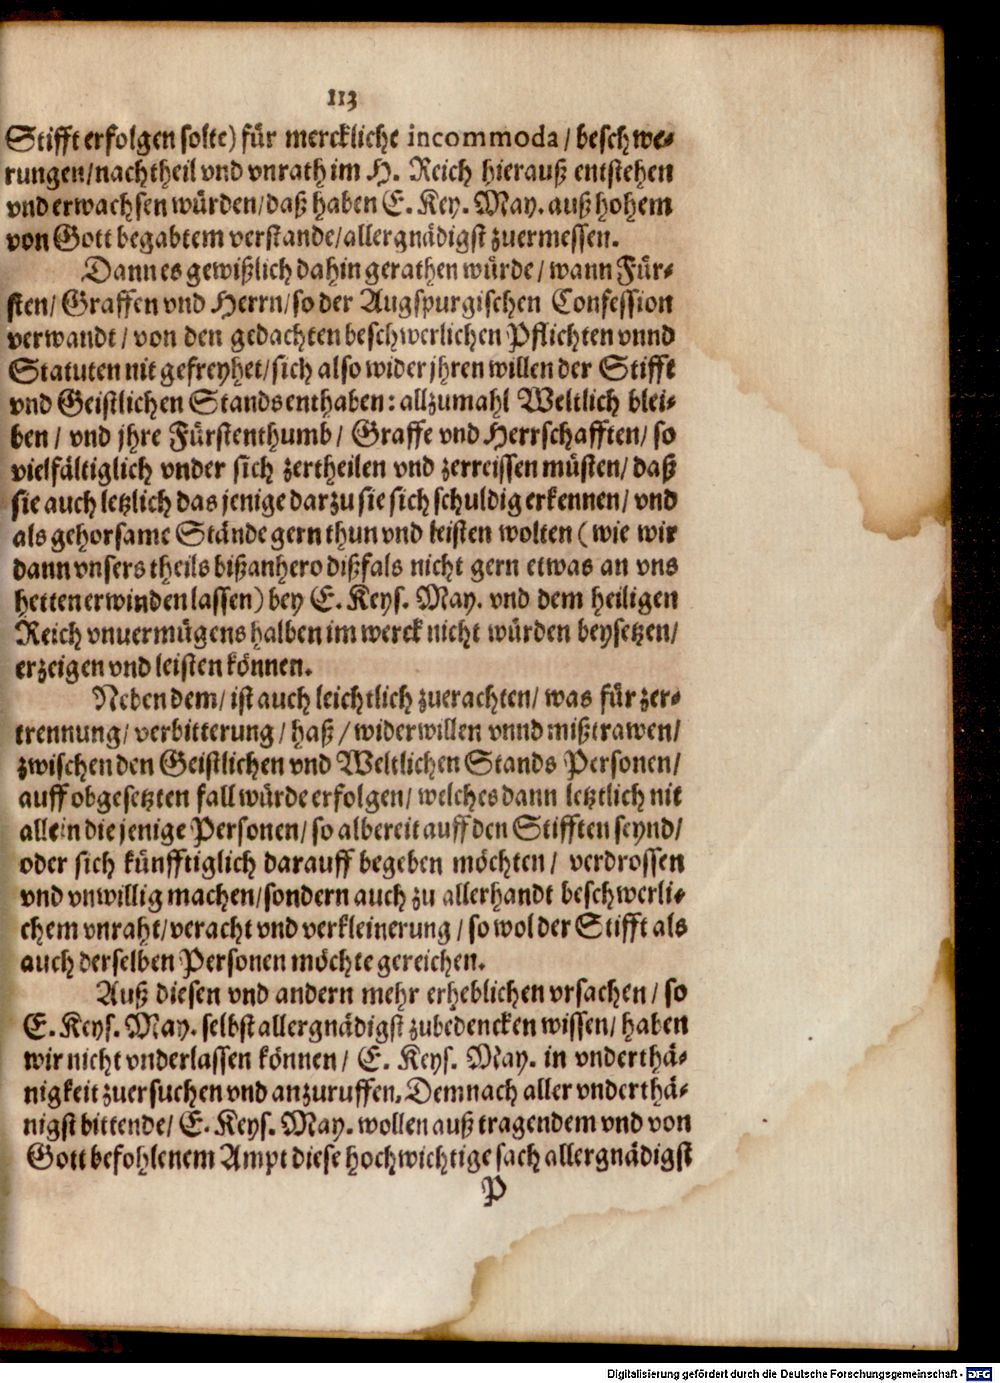 113
Stifft erfolgen solte) für merckliche incommoda / beschwe-
rungen/nachtheil vnd vnrath im H. Reich hierauß entstehen
vnd erwachsen würden/daß haben E. Key. May. auß hohem
von Gott begabtem verstande/allergnädigst zuermessen.
Dann es gewißlich dahin gerathen würde / wann Für-
sten/ Graffen vnd Herrn/so der Augspurgischen Confession
verwandt / von den gedachten beschwerlichen Pflichten vnnd
Statuten nit gefreyhet/sich also wider jhren willen der Stifft
vnd Geistlichen Stands enthaben: allzumahl Weltlich blei-
ben / vnd jhre Fürstenthumb/ Graffe vnd Herrschafften/ so
vielfältiglich vnder sich zertheilen vnd zerreissen müsten/ daß
sie auch letzlich das jenige darzu sie sich schuldig erkennen/ vnd
als gehorsame Stände gern thun vnd leisten wolten ( wie wir
dann vnsers theils bißanhero dißfals nicht gern etwas an vns
hetten erwinden lassen) bey E. Keys. May. vnd dem heiligen
Reich vnuermügens halben im werck nicht würden beysetzen/
erzeigen vnd leisten können.
Neben dem/ ist auch leichtlich zuerachten/ was für zer-
trennung/ verbitterung / haß / widerwillen vnnd mißtrawen/
zwischen den Geistlichen vnd Weltlichen Stands Personen/
auff obgesetzten fall würde erfolgen/ welches dann letztlich nit
allein die jenige Personen/ so albereit auff den Stifften seynd/
oder sich künfftiglich darauff begeben möchten / verdrossen
vnd vnwillig machen/sondern auch zu allerhandt beschwerli-
chem vnraht/veracht vnd verkleinerung / so wol der Stifft als
auch derselben Personen möchte gereichen.
Auß diesen vnd andern mehr erheblichen vrsachen / so
E. Keys. May. selbst allergnädigst zubedencken wissen/ haben
wir nicht vnderlassen können / E. Keys. May. in vnderthä-
nigkeit zuersuchen vnd anzuruffen. Demnach aller vnderthä-
nigst bittende/ E. Keys. May. wollen auß tragendem vnd von
Gott befohlenem Ampt diese hochwichtige sach allergnädigst
P
Digitalisierung gefördert durch die Deutsche Forschungsgemeinschaft - DFG